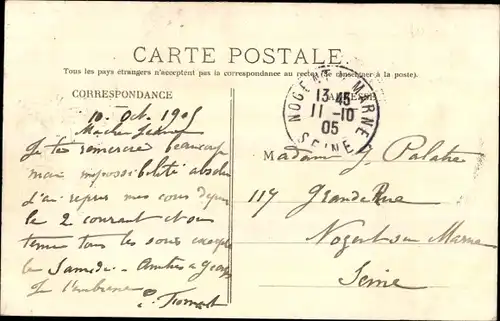 CARTE POSTALE
Tous les pays étrangers n'acceptent pas la correspondance au recto (Se renseigner à la poste).
CORRESPONDANCE
NOGENT S MARNE
SEINE
13 45
11 -10
05
10. Oct. 1905
Je te remercie beaucoup
mais impossibilité absolue
J'ai repris mes cours depuis
le 2 courant et suis
tenue tous les soirs excepté
le Samedi - Amitiés à
Je t'embrasse
Madame J Palatre
117 Grande Rue
Nogent sur Marne
Seine